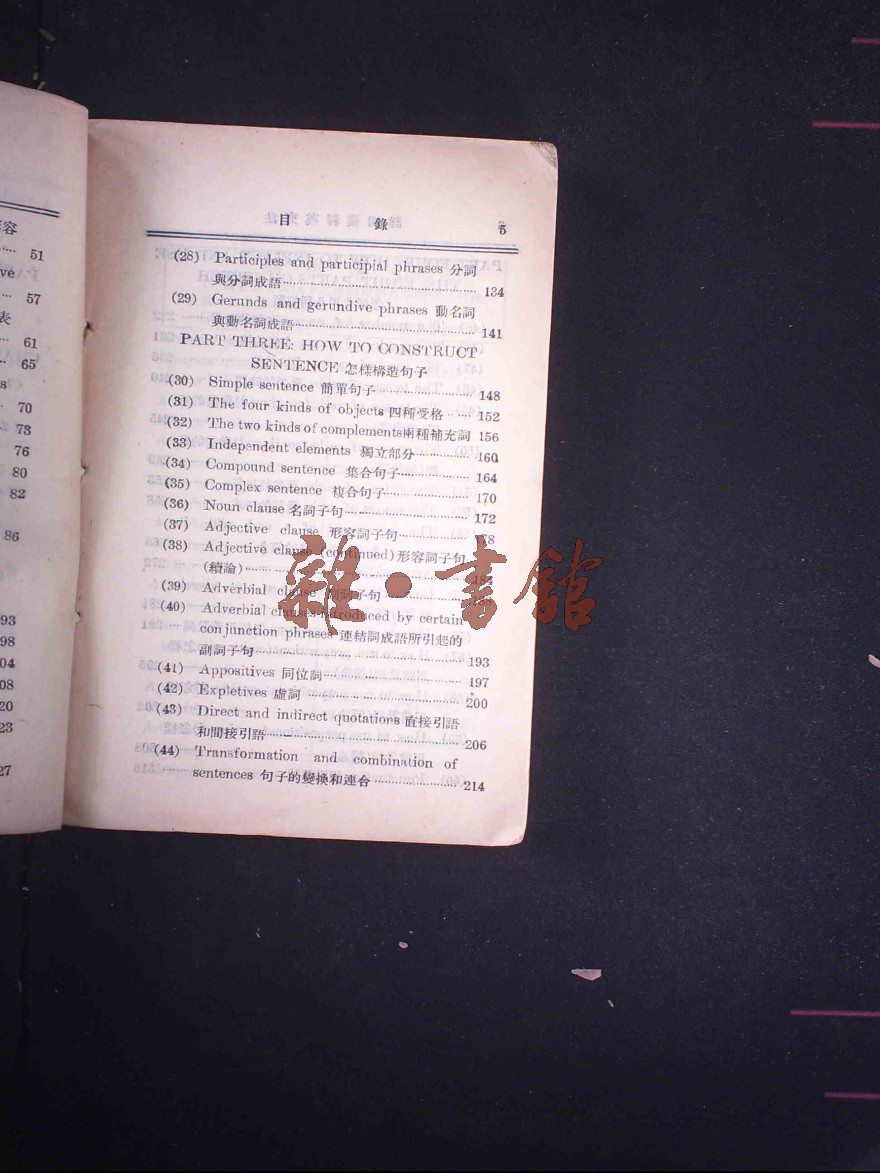 形容
51
ve
57
表
61
65
s
70
73
76
80
82
86
93
98
04
08
20
23
27
目 錄 5
(28) Participles and participial phrases 分詞
與分詞成語 134
(29) Gerunds and gerundive phrases 動名詞
與動名詞成語 141
PART THREE: HOW TO CONSTRUCT
SENTENCE 怎樣構造句子
(30) Simple sentence 簡單句子 148
(31) The four kinds of objects 四種受格 152
(32) The two kinds of complements兩種補充詞 156
(33) Independent elements 獨立部分 160
(34) Compound sentence 集合句子 164
(35) Complex sentence 複合句子 170
(36) Noun clause 名詞子句 172
(37) Adjective clause 形容詞子句 178
(38) Adjective clause (continued) 形容詞子句
(續論)
(39) Adverbial clause 副詞子句
(40) Adverbial clauses introduced by certain
conjunction phrases 連結詞成語所引起的
副詞子句 193
(41) Appositives 同位詞 197
(42) Expletives 虛詞 200
(43) Direct and indirect quotations 直接引語
和間接引語 206
(44) Transformation and combination of
sentences 句子的變換和連合 214
雜·書館